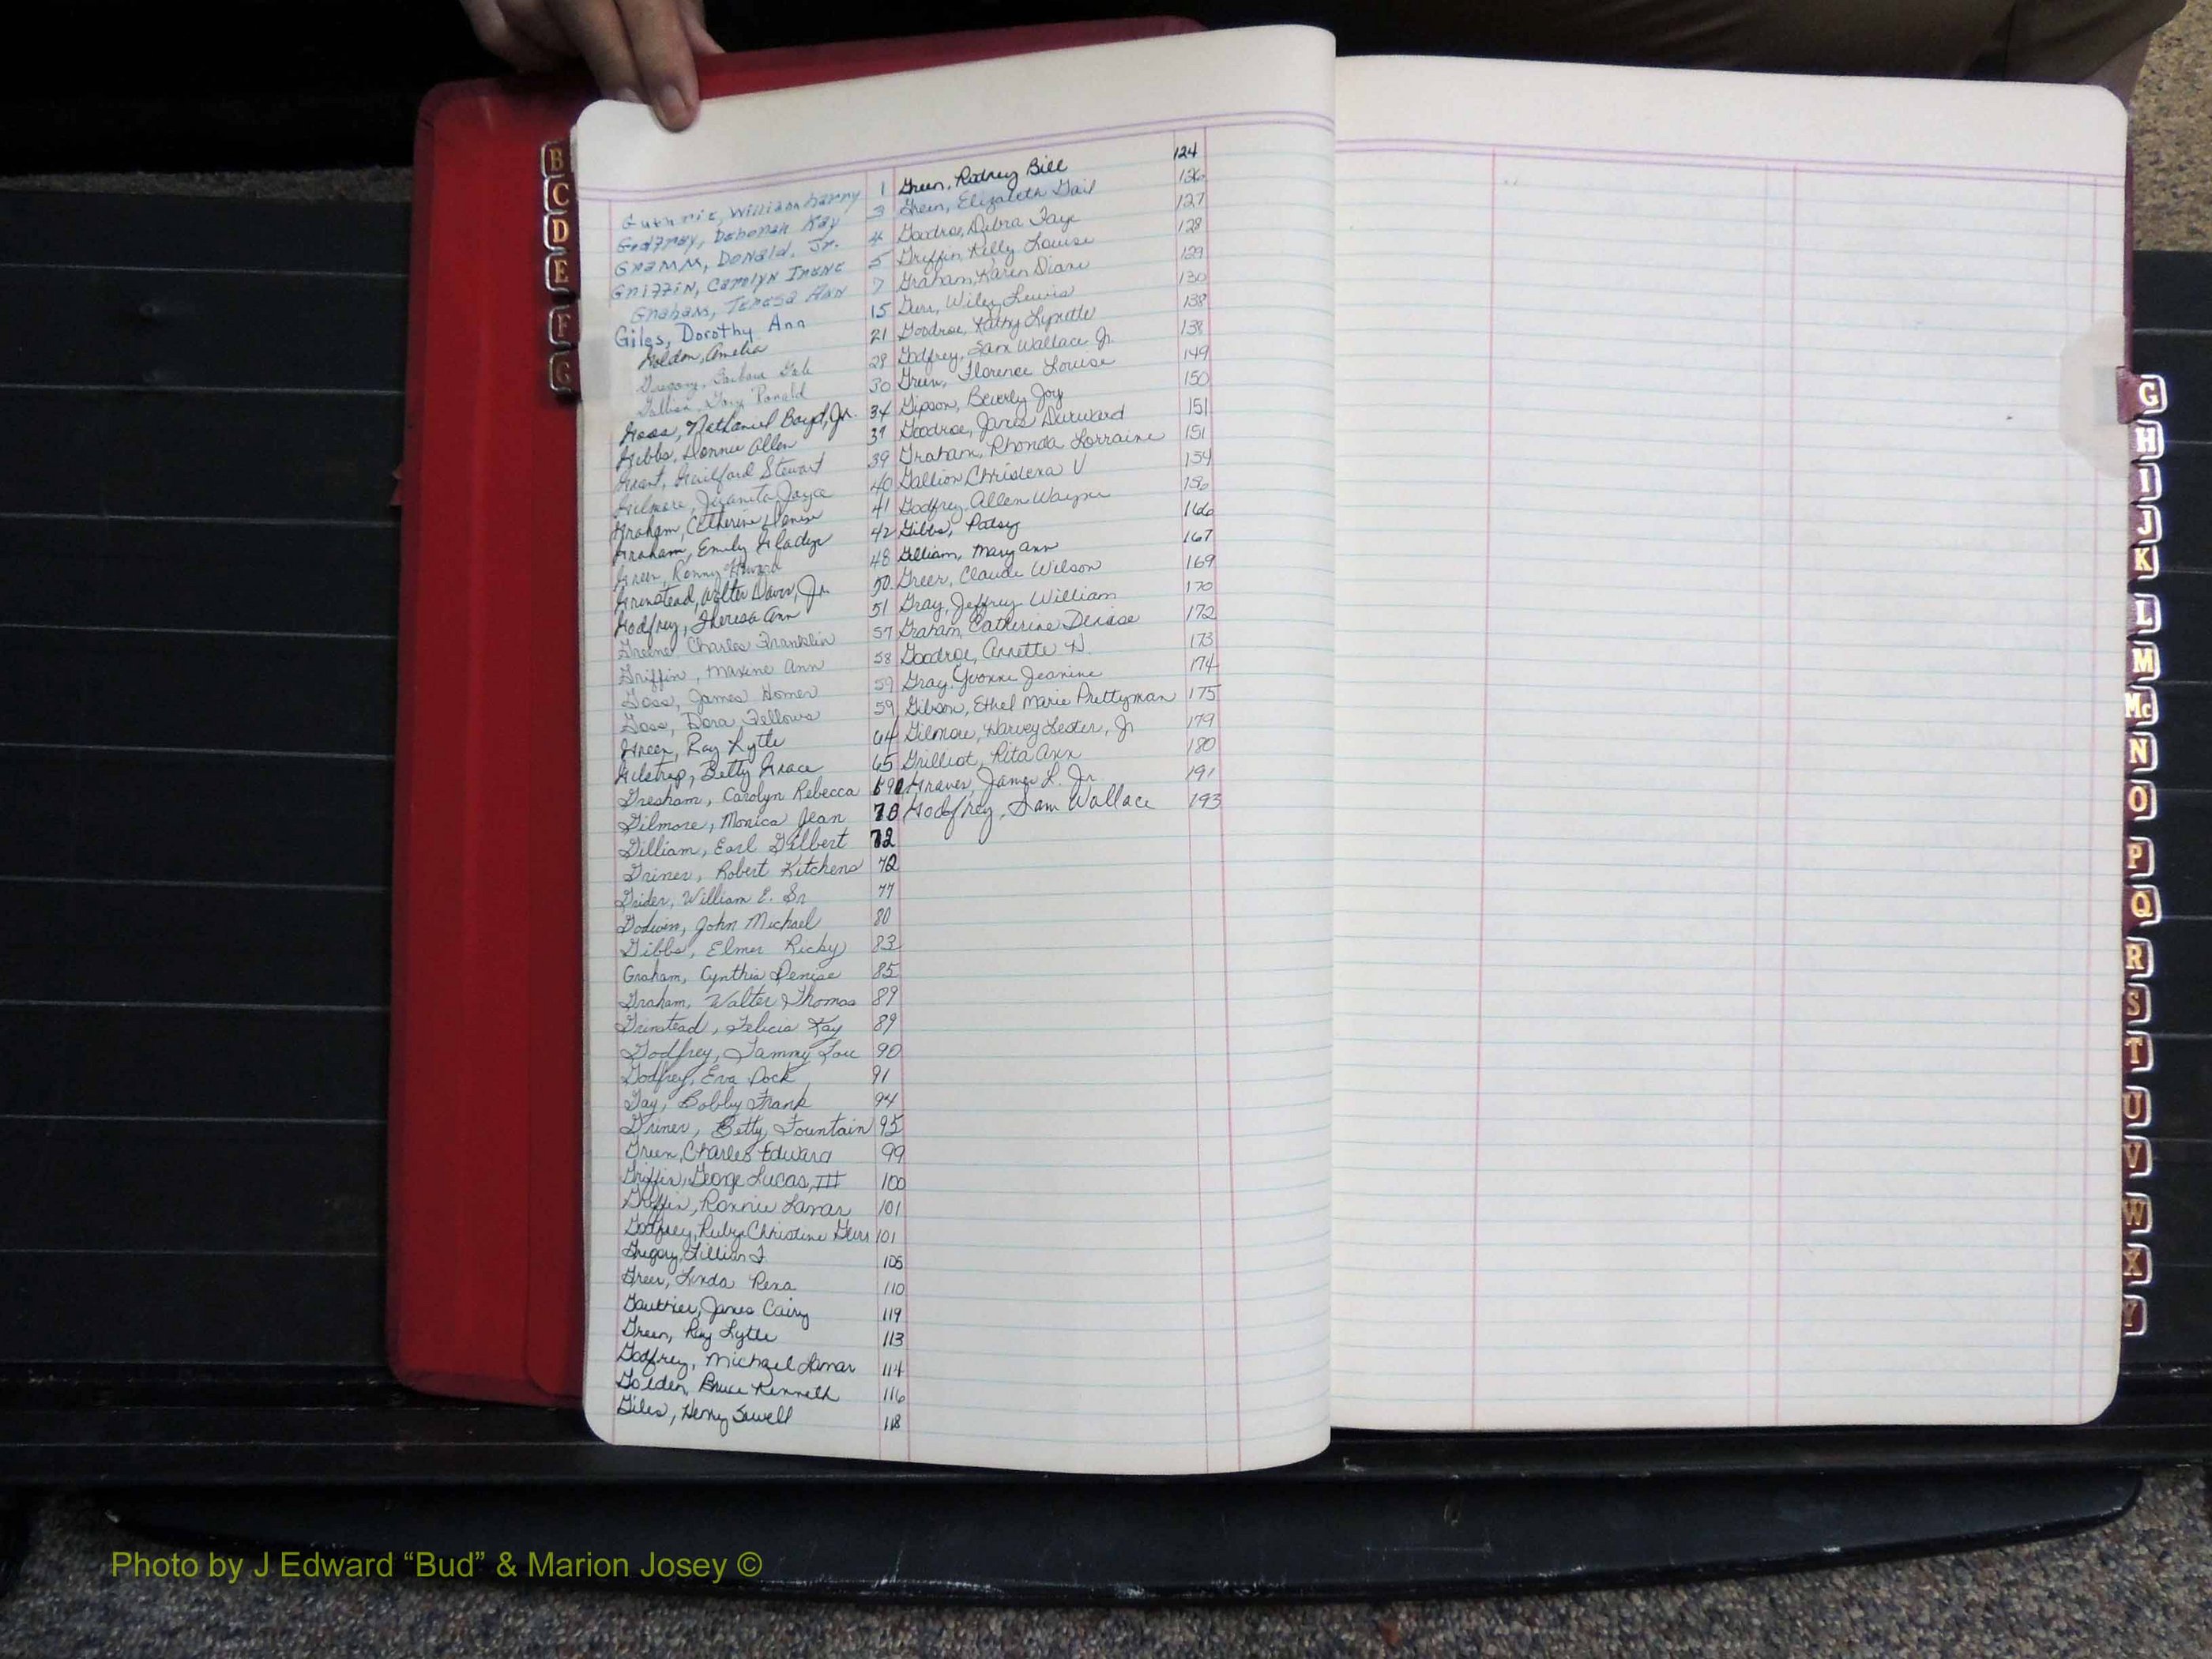 B
C
D
E
F
G
Guthrie, William Harry 1
Godfrey, Deborah Kay 3
Gramm, Donald, Jr. 4
Griffin, Carolyn Irene 5
Graham, Teresa Ann 7
Giles, Dorothy Ann 15
Holdon, Amelia 21
Gregory, Barbara Gale 28
Gallion, Gary Ronald 30
Goss, Nathaniel Boyd, Jr. 34
Gibbs, Donnie Allen 37
Grant, Guilford Stewart 39
Gilmore, Juanita Joyce 40
Graham, Catherine Denise 41
Graham, Emily Gladys 42
Green, Ronny Howard 48
Grinstead, Walter Davis, Jr. 50
Godfrey, Theresa Ann 51
Greene, Charles Franklin 57
Griffin, Maxine Ann 58
Goss, James Homer 59
Goss, Dora Fellows 59
Green, Ray Lytle 64
Gilstrap, Betty Grace 65
Gresham, Carolyn Rebecca 69
Gilmore, Monica Jean 70
Gilliam, Earl Gilbert 72
Griner, Robert Kitchens 72
Grider, William E. Sr. 77
Godwin, John Michael 80
Gibbs, Elmer Ricky 83
Graham, Cynthia Denise 85
Graham, Walter Thomas 89
Grinstead, Felicia Kay 89
Godfrey, Tammy Lou 90
Godfrey, Eva Dock 91
Gay, Bobby Frank 94
Griner, Betty Fountain 95
Green, Charles Edward 99
Griffin, George Lucas, III 100
Griffin, Ronnie Lamar 101
Godfrey, Ruby Christine 101
Gregory, Lillian F 105
Greer, Linda Rena 110
Gauthier, James Cairy 119
Green, Ray Lytle 113
Godfrey, Michael Lamar 114
Golden, Bruce Kenneth 116
Giles, Henry Sewell 118
Green, Rodney Bill 124
Green, Elizabeth Gail 126
Goodroe, Debra Faye 127
Griffin, Kelly Louise 128
Graham, Karen Diane 129
Geer, Wiley Lewis 130
Goodroe, Kathy Lynette 138
Godfrey, Sam Wallace Jr. 138
Green, Florence Louise 149
Gipson, Beverly Joy 150
Goodroe, James Durward 151
Graham, Rhonda Lorraine 151
Gallion Christena V 154
Godfrey, Allen Wayne 156
Gibbs, Patsy 166
Gilliam, Mary Ann 167
Greer, Claude Wilson 169
Gray, Jeffrey William 170
Graham, Catherine Denise 172
Goodroe, Annette H. 173
Gray, Yvonne Jeanine 174
Gibson, Ethel Marie Prettyman 175
Gilmore, Harvey Lester, Jr 179
Grilliot, Rita Ann 180
Graves, James L. Jr. 191
Godfrey, Sam Wallace 193
G
H
I
J
K
L
M
Mc
N
O
P
Q
R
S
T
U
V
W
X
Y
Photo by J Edward “Bud” & Marion Josey ©